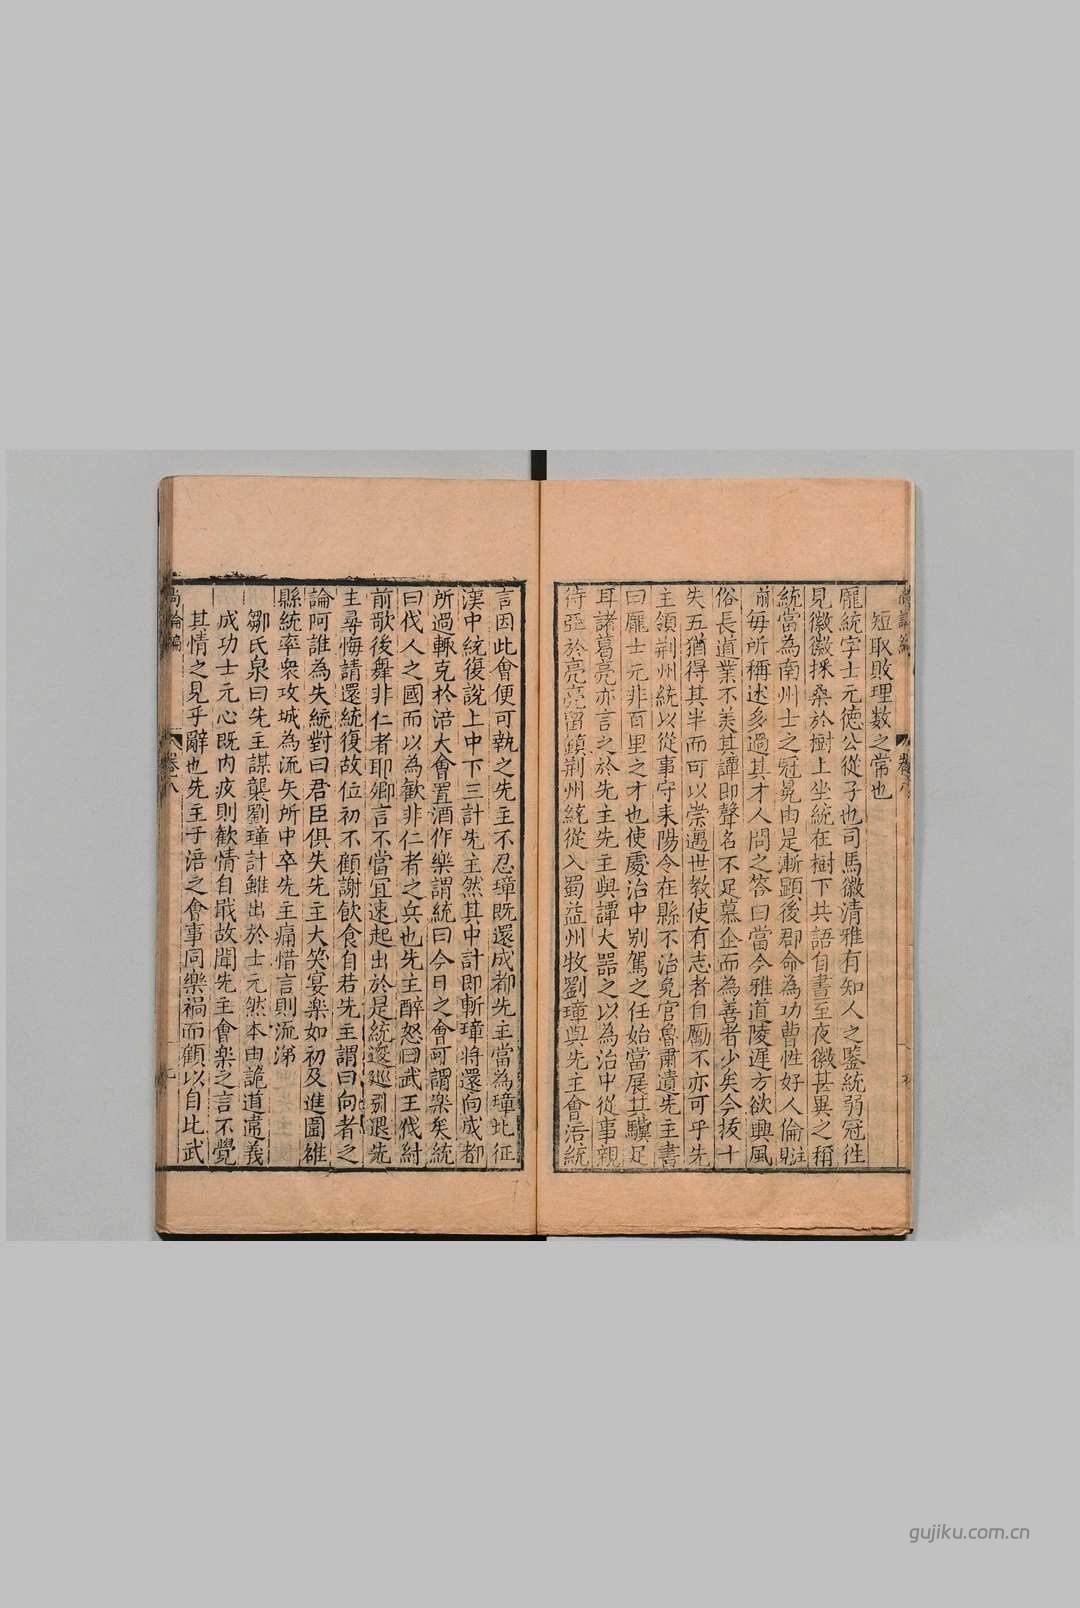 短取敗理數之常也
龐統字士元德公從子也司馬徽清雅有知人之鑒統弱冠往
見徽徽採桑於樹上坐統在樹下共語自晝至夜徽甚異之稱
統當為南州士之冠冕由是漸顯後郡命為功曹性好人倫
每所稱述多過其才人問之答曰當今雅道陵遲方欲興風
俗長道業不美其譚即聲名不足慕企而為善者少矣今拔十
失五猶得其半而可以崇邁世教使有志者自勵不亦可乎先
主領荆州統以從事守耒陽令在縣不治免官魯肅遺先主書
曰龐士元非百里之才也使處治中别駕之任始當展其驥足
耳諸葛亮亦言之於先主先主與譚大器之以為治中從事親
待亞於亮亮留鎮荆州統從入蜀益州牧劉璋與先主會涪統
言因此會便可執之先主不忍璋既還成都先主當為璋北征
漢中統復說上中下三計先主然其中計即斬璋將還向成都
所過輒克於涪大會置酒作樂謂統曰今日之會可謂樂矣統
曰伐人之國而以為歡非仁者之兵也先主醉怒曰武王伐紂
前歌後舞非仁者耶卿言不當宜速起出於是統逡巡引退先
主尋悔請還統復故位初不顧謝飲食自若先主謂曰向者之
論阿誰為失統對曰君臣俱失先主大笑宴樂如初及進圍雒
縣統率衆攻城為流矢所中卒先主痛惜言則流涕
鄒氏泉曰先主謀襲劉璋計雖出於士元然本由詭道違義
成功士元心既内疚則歡情自戢故聞先主會樂之言不覺
其情之見乎辭也先主于涪之會事同樂禍而顧以自比武
尚論編
卷八
九
gujiku.com.cn